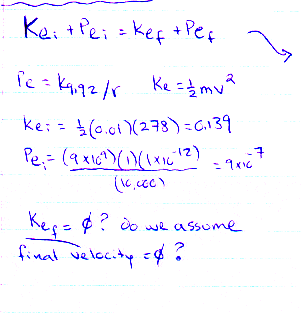 Kei + Pei = Kef + Pef
Pe = kq1q2/r Ke = ½mv²
Kei = ½(0.01)(278) = 0.139
Pei = (9x10⁹)(1)(1x10⁻¹²) = 9x10⁻⁷
(10,000)
Kef = ϕ? do we assume
final velocity = ϕ?